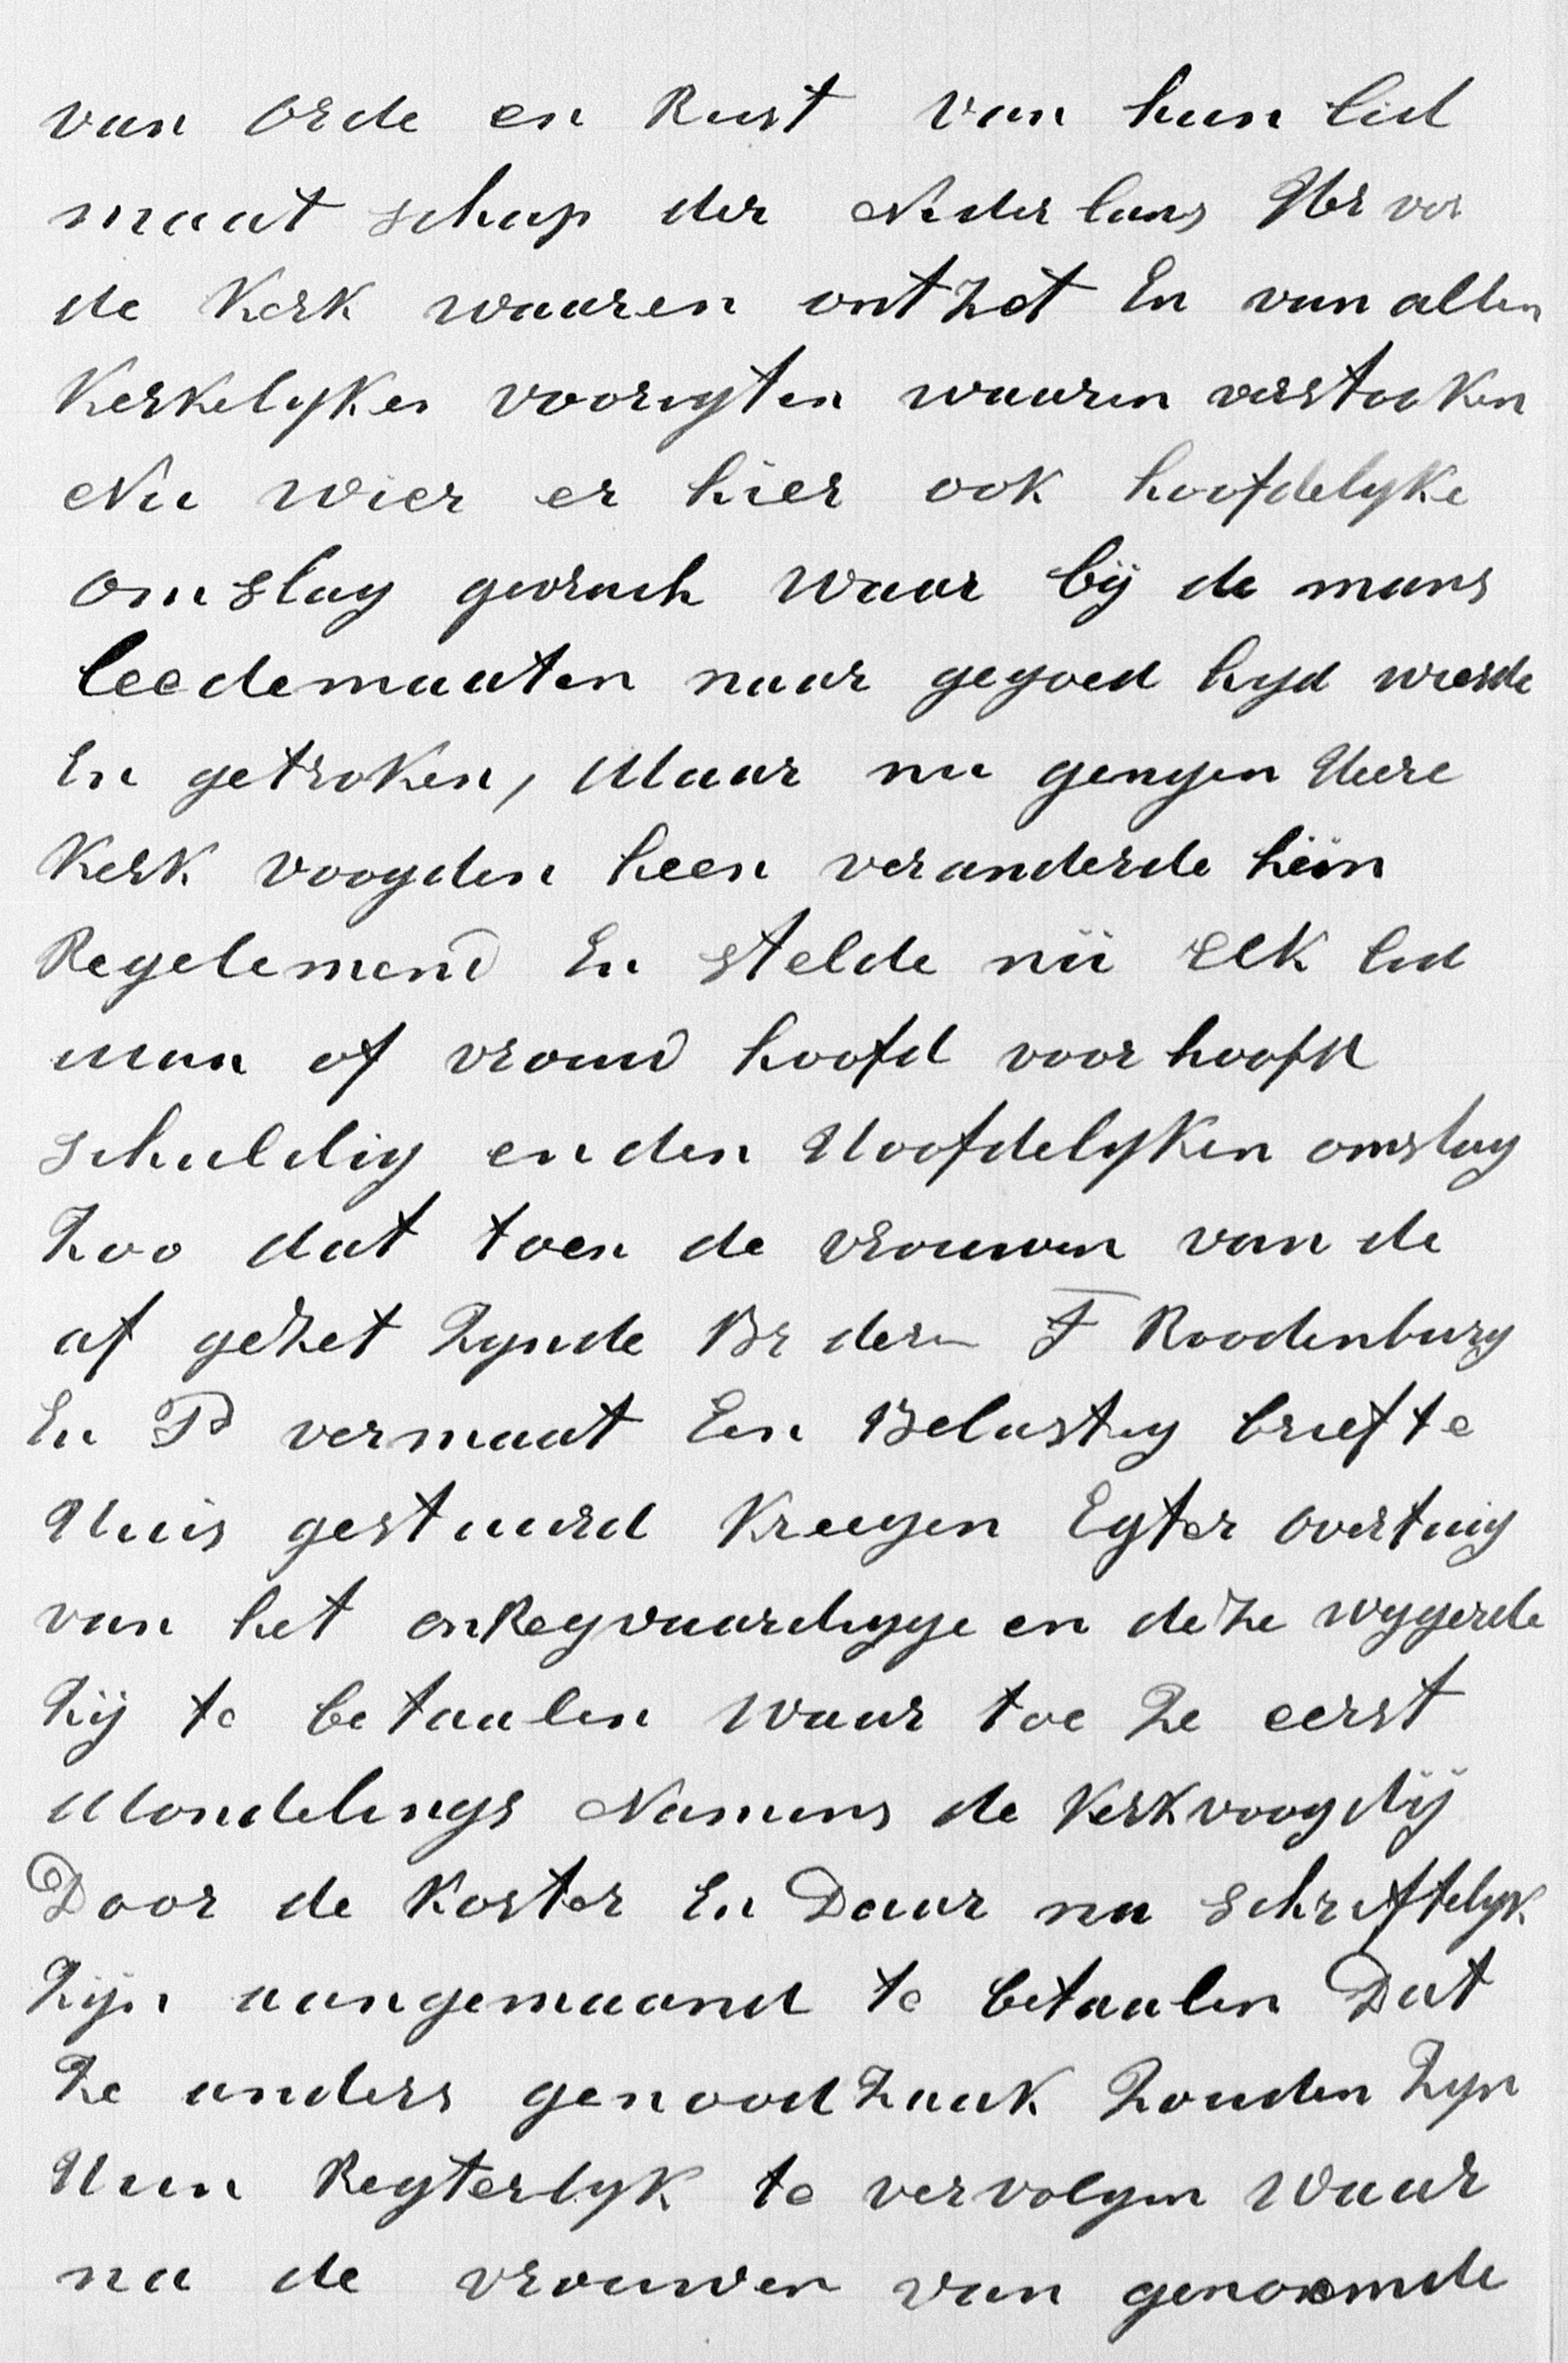 van Orde en Rust van hun lid
maat schap der Nederlans Her vor
de Kerk waaren ontzet En van allen
Kerkelyken voorregten waaren verstooken
Nu wier er hier ook hoofdelyke
omslag gevrach waar bij de mans
leedemaaten naar gegoed hyd wierde
En getroken, Maar nu gengen Heere
Kerk voogden heen veranderde hun
Regelemend En stelde nu Elk lid
man of vrouw hoofd voor hoofd
schuldig en den Hoofdelyken omslag
Zoo dat toen de vrouwen van de
af gezet Zynde Br ders F Roodenburg
En P vermaat Een Belasting brief te
Huis gestuurd Kreegen Egter overtuig
van het onRegvaardigge en deze wygerde
Zij te betaalen waar toe Ze eerst
Mondelings Namens de Kerkvoogdij
Door de Koster En Daar na schriftelyk
Zijn aangemaand te betaalen Dat
Ze anders genoodzaak Zouden Zyn
Hun Regterlyk te vervolgen waar
na de vrouwen van genoemde